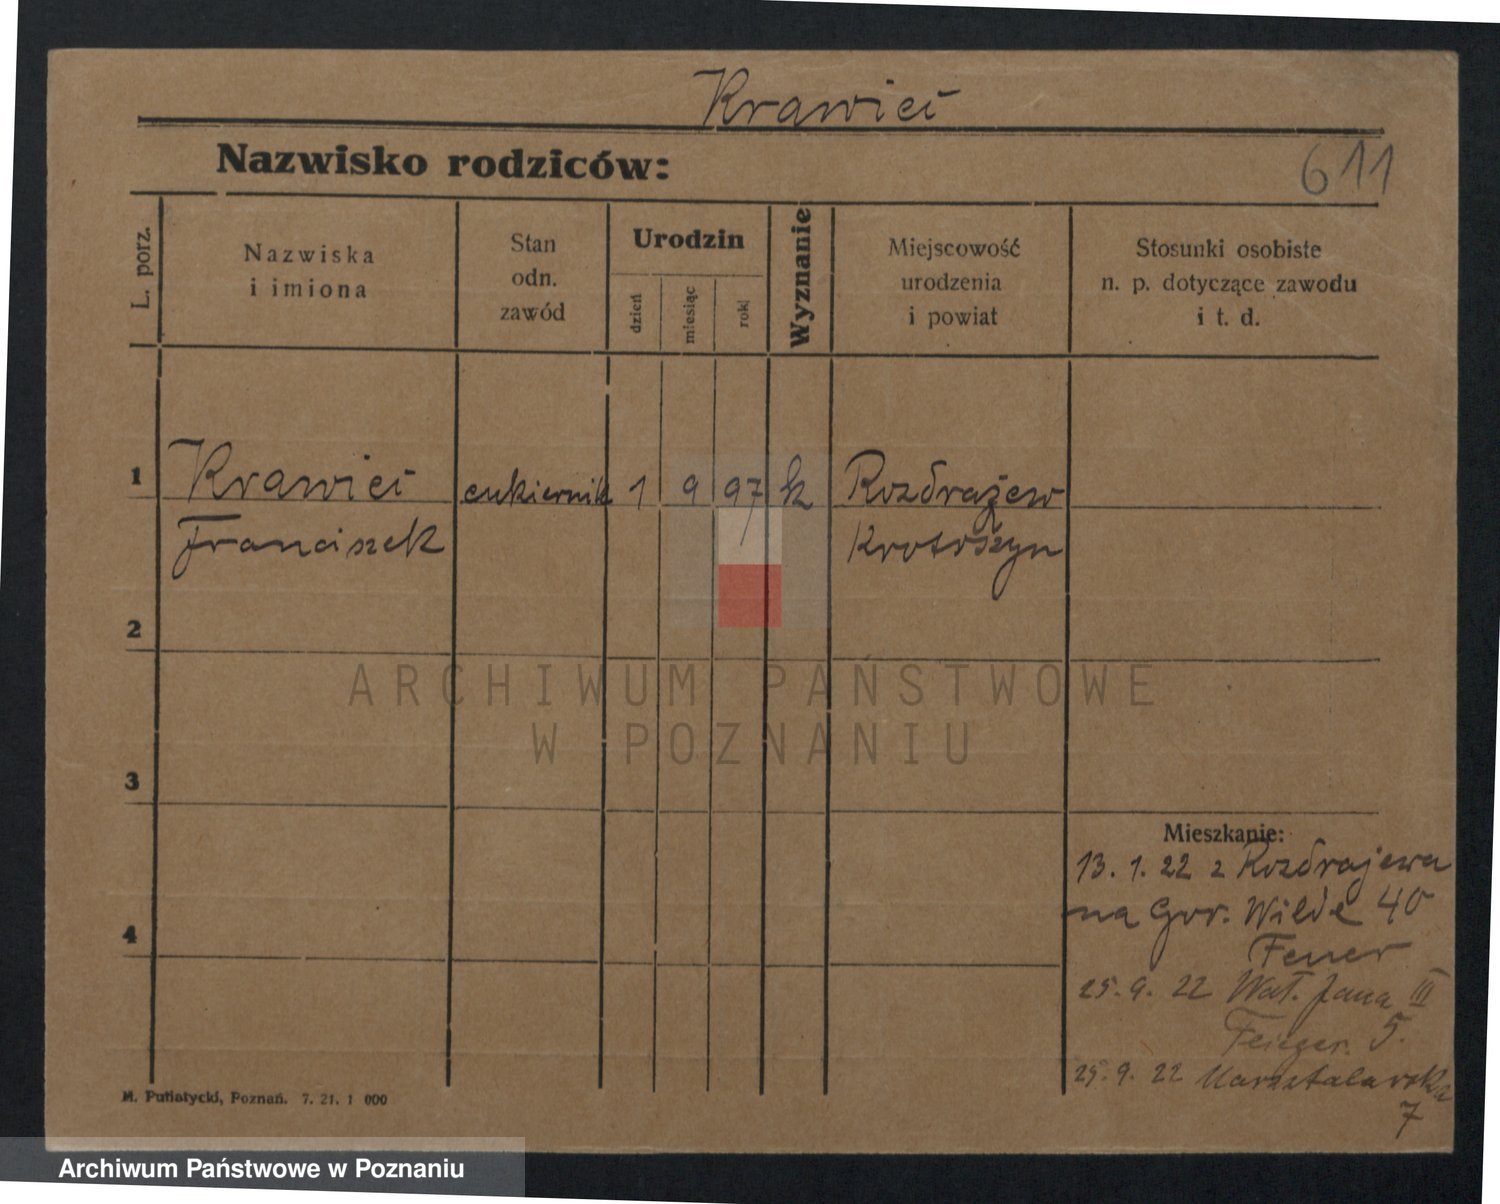 Krawieć
Nazwisko rodziców:
611
L. porz.
Nazwiska
i imiona
Stan
odn.
zawód
Urodzin
dzień
miesiąc
rok
Wyznanie
Miejscowość
urodzenia
i powiat
Stosunki osobiste
n. p. dotyczące zawodu
i t. d.
1 Krawieć cukiernik 1 9 97 k Rozdrażew
Franciszek Krotoszyn
2
3
4
Mieszkanie:
13. 1. 22 z Rozdrajewa
na Gor. Wilde 40
25. 9. 22 Wał. Jana III
5.
25. 9. 22 Marsztalarska
7
M. Putiatycki, Poznań. 7. 21. 1 000
ARCHIWUM PAŃSTWOWE
W POZNANIU
Archiwum Państwowe w Poznaniu